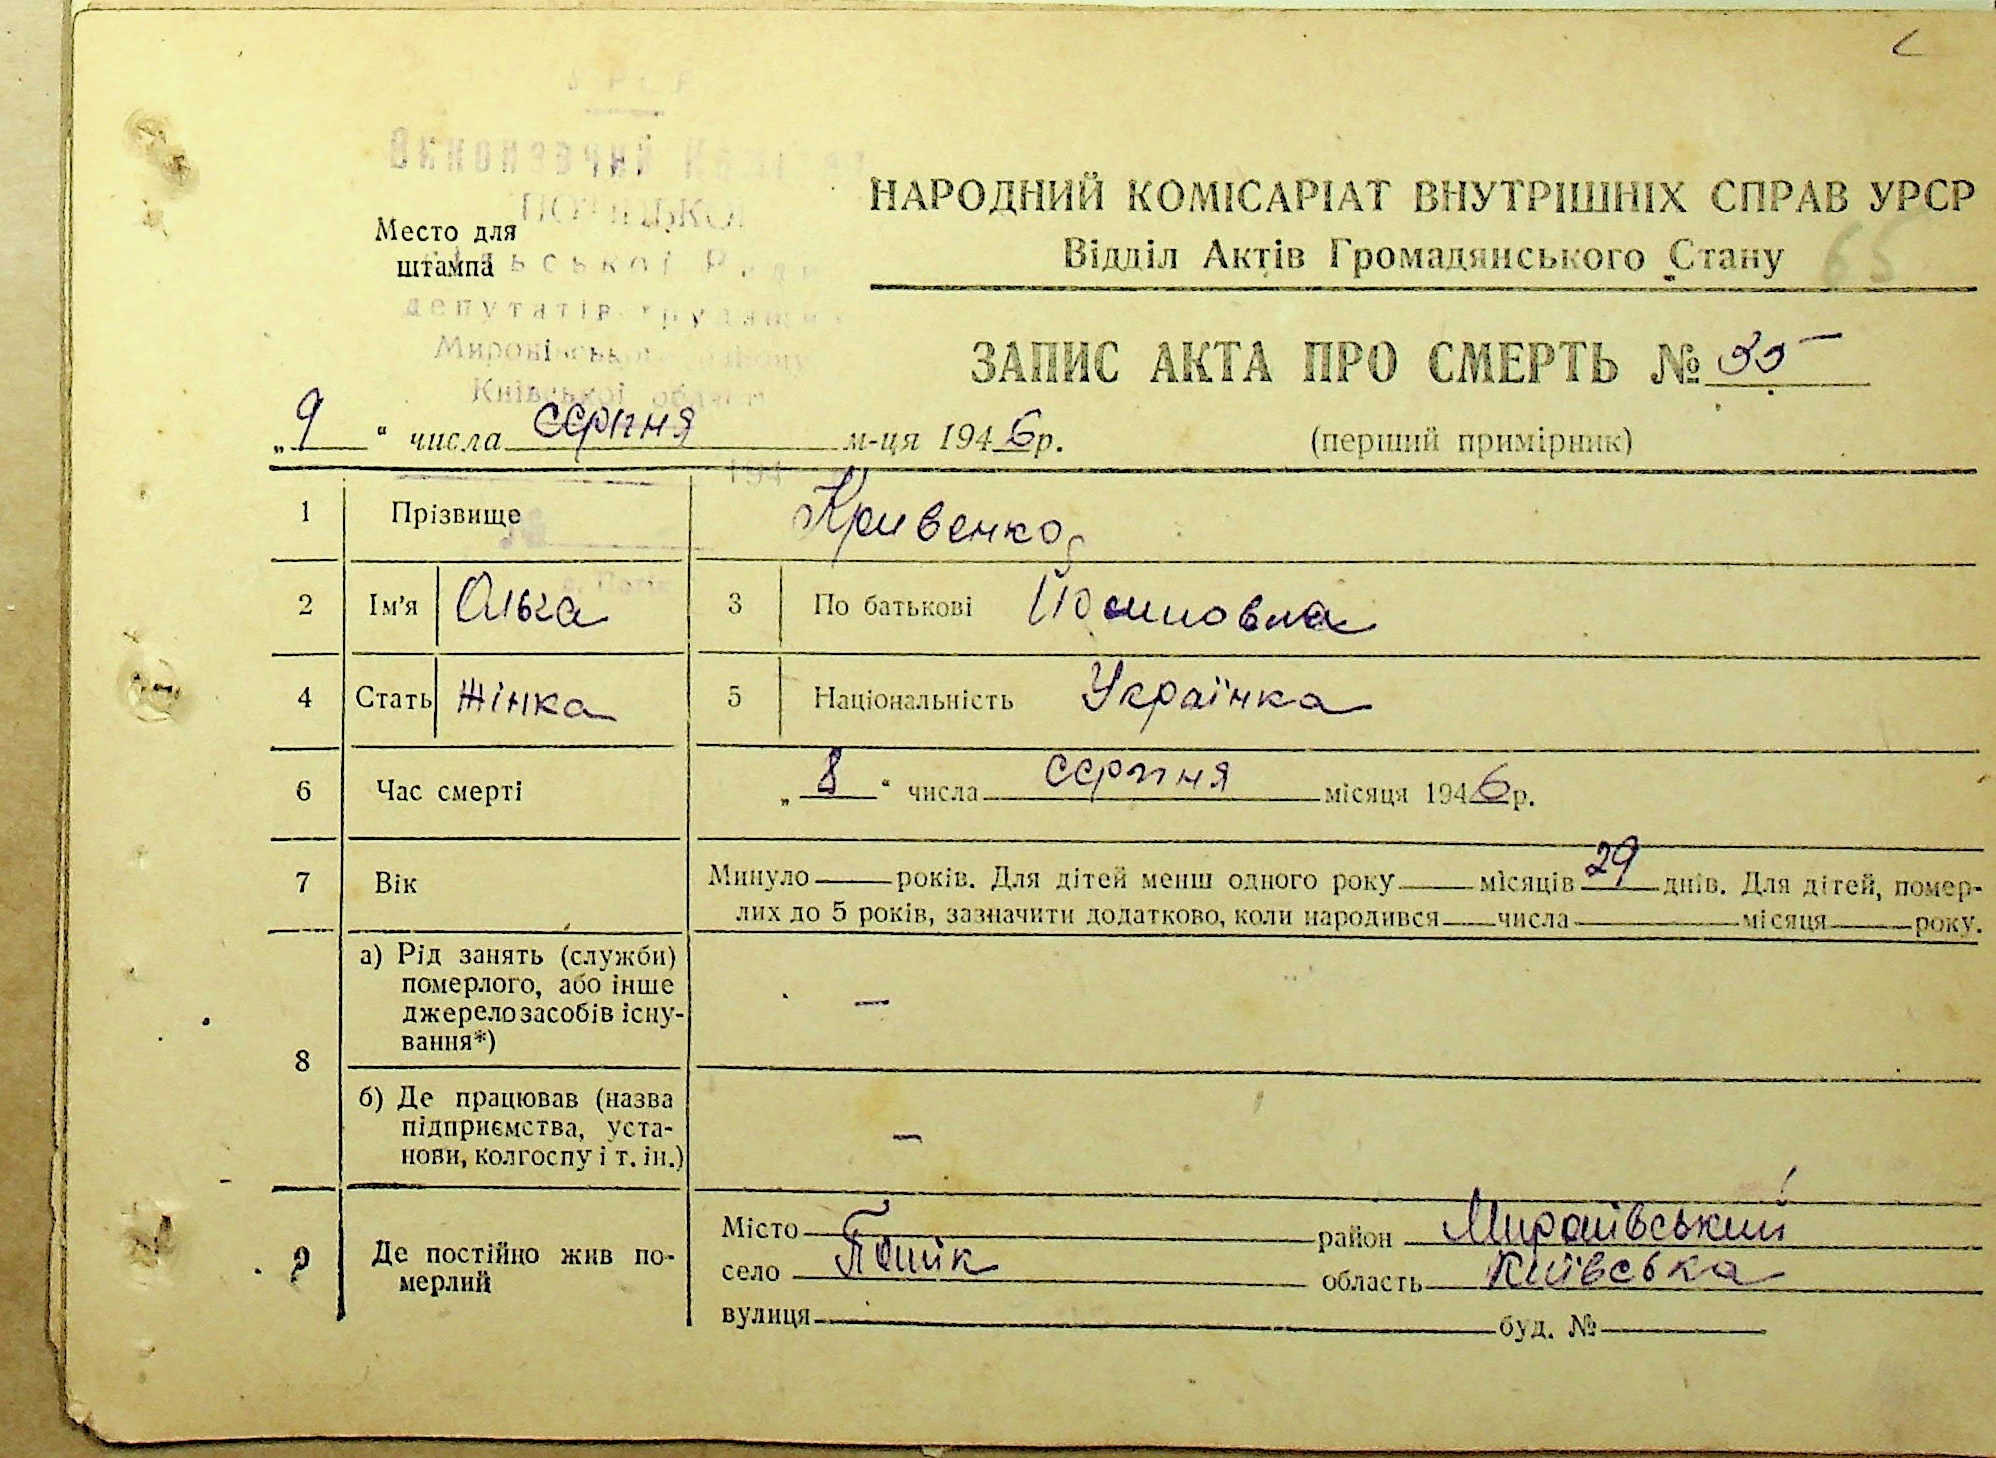 65
НАРОДНИЙ КОМІСАРІАТ ВНУТРІШНІХ СПРАВ УРСР
Відділ Актів Громадянського Стану
Место для
штампа
сільської Ради
депутатів трудящих
Миронівського району
Київської області
ЗАПИС АКТА ПРО СМЕРТЬ № 35
„9“ числа серпня м-ця 1946р.
(перший примірник)
194
1 Прізвище Кривенко
2 Ім'я Ольга 3 По батькові Йосиповна
4 Стать Жінка 5 Національність Українка
6 Час смерті „8“ числа серпня місяця 1946р.
7 Вік Минуло — років. Для дітей менш одного року — місяців 29 днів. Для дітей, помер-
лих до 5 років, зазначити додатково, коли народився — числа — місяця — року.
8 а) Рід занять (служби)
померлого, або інше
джерело засобів існу-
вання*) —
б) Де працював (назва
підприємства, уста-
нови, колгоспу і т. ін.) —
9 Де постійно жив по-
мерлий
Місто район Миронівський
село Потік область Київська
вулиця буд. №